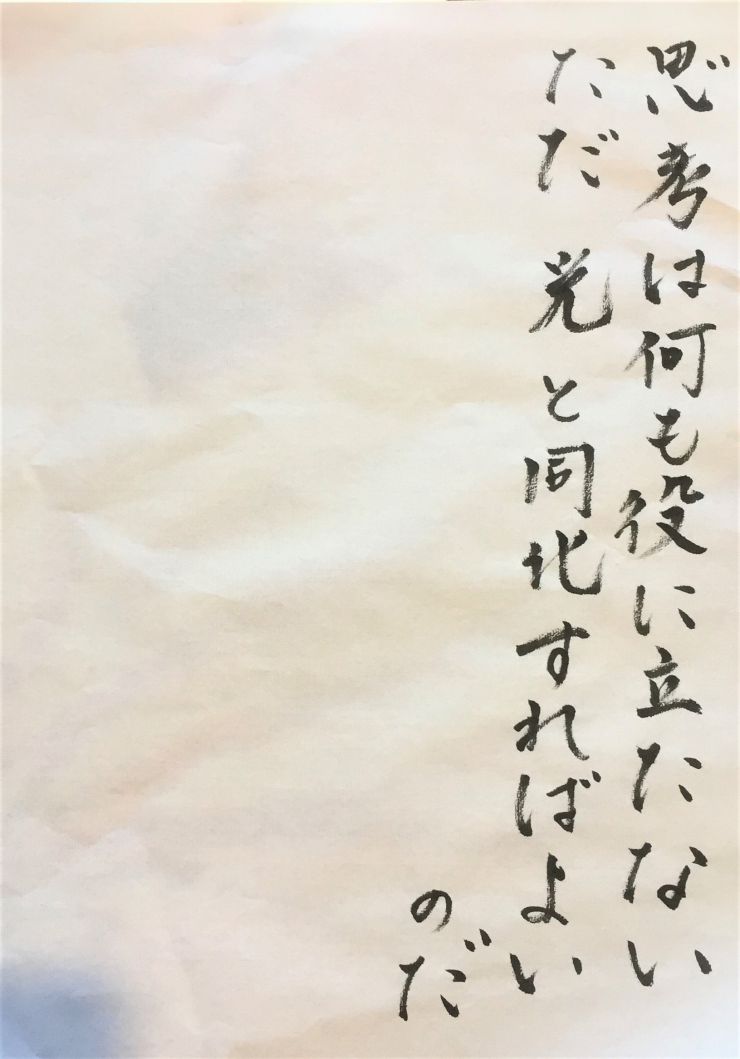 思考は何も役に立たない
ただ 光と同化すればよい
のだ